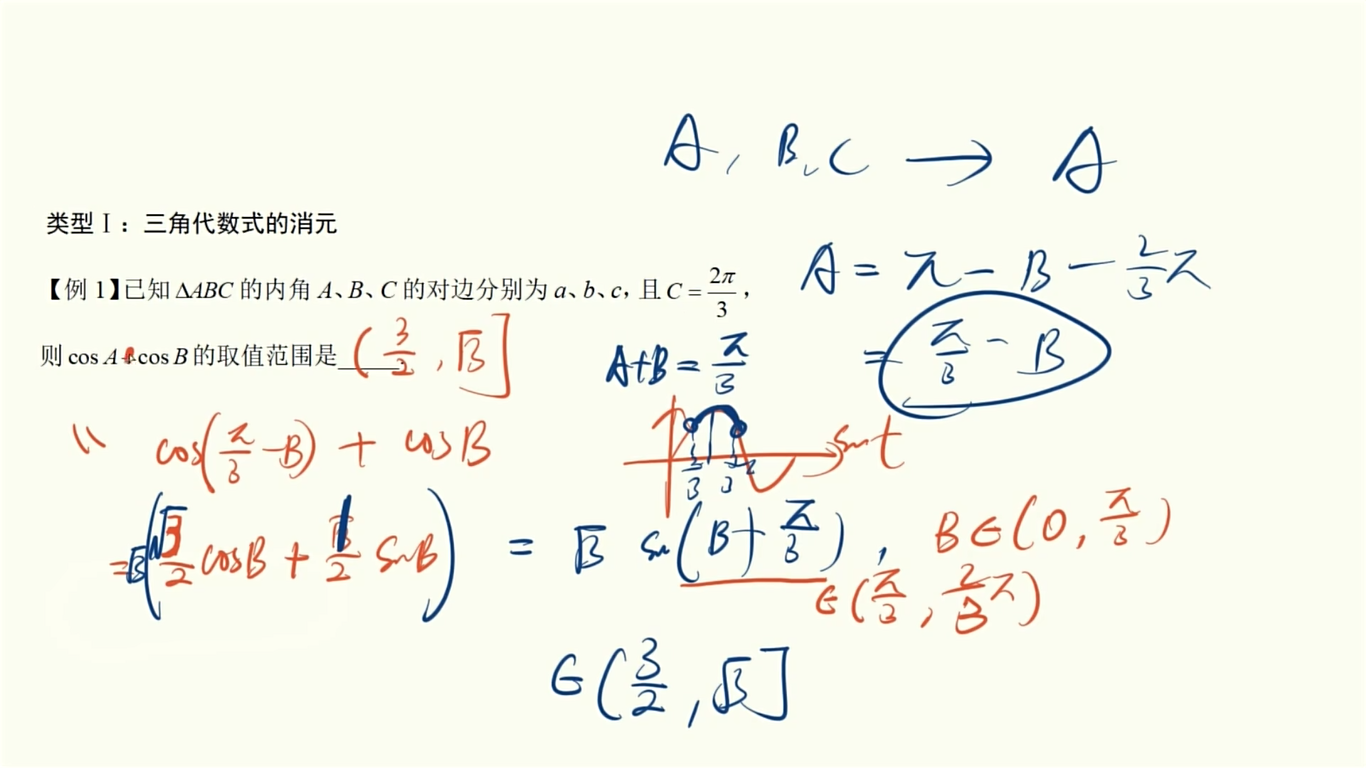 A, B, C → A
类型Ⅰ：三角代数式的消元
A = π − B − 2/3 π
【例 1】已知 ΔABC 的内角 A、B、C 的对边分别为 a、b、c，且 C = 2π/3，
则 cos A + cos B 的取值范围是______ (3/2, √3]
A+B = π/3
= π/3 − B
cos(π/3 − B) + cos B
sin t
π/3 2π/3
= √3(√3/2 cosB + 1/2 sinB) = √3 sin(B + π/3), B∈(0, π/3)
∈(π/3, 2/3 π)
∈(3/2, √3]